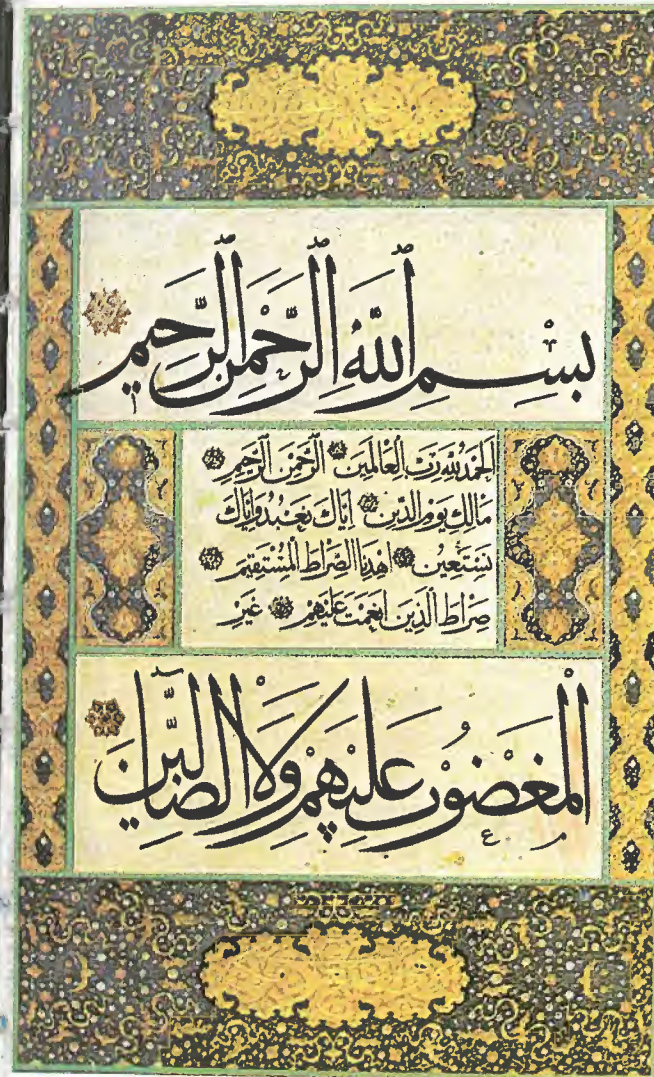 بِسْمِ ٱللَّهِ ٱلرَّحْمٰنِ ٱلرَّحِيمِ
اَلْحَمْدُ لِلّٰهِ رَبِّ الْعَالَمِينَ ۝ اَلرَّحْمٰنِ الرَّحِيمِ ۝
مَالِكِ يَوْمِ الدِّينِ ۝ اِيَّاكَ نَعْبُدُ وَاِيَّاكَ
نَسْتَعِينُ ۝ اِهْدِنَا الصِّرَاطَ الْمُسْتَقِيمَ ۝
صِرَاطَ الَّذِينَ اَنْعَمْتَ عَلَيْهِمْ ۝ غَيْرِ
الْمَغْضُوبِ عَلَيْهِمْ وَلَا الضَّالِّينَ